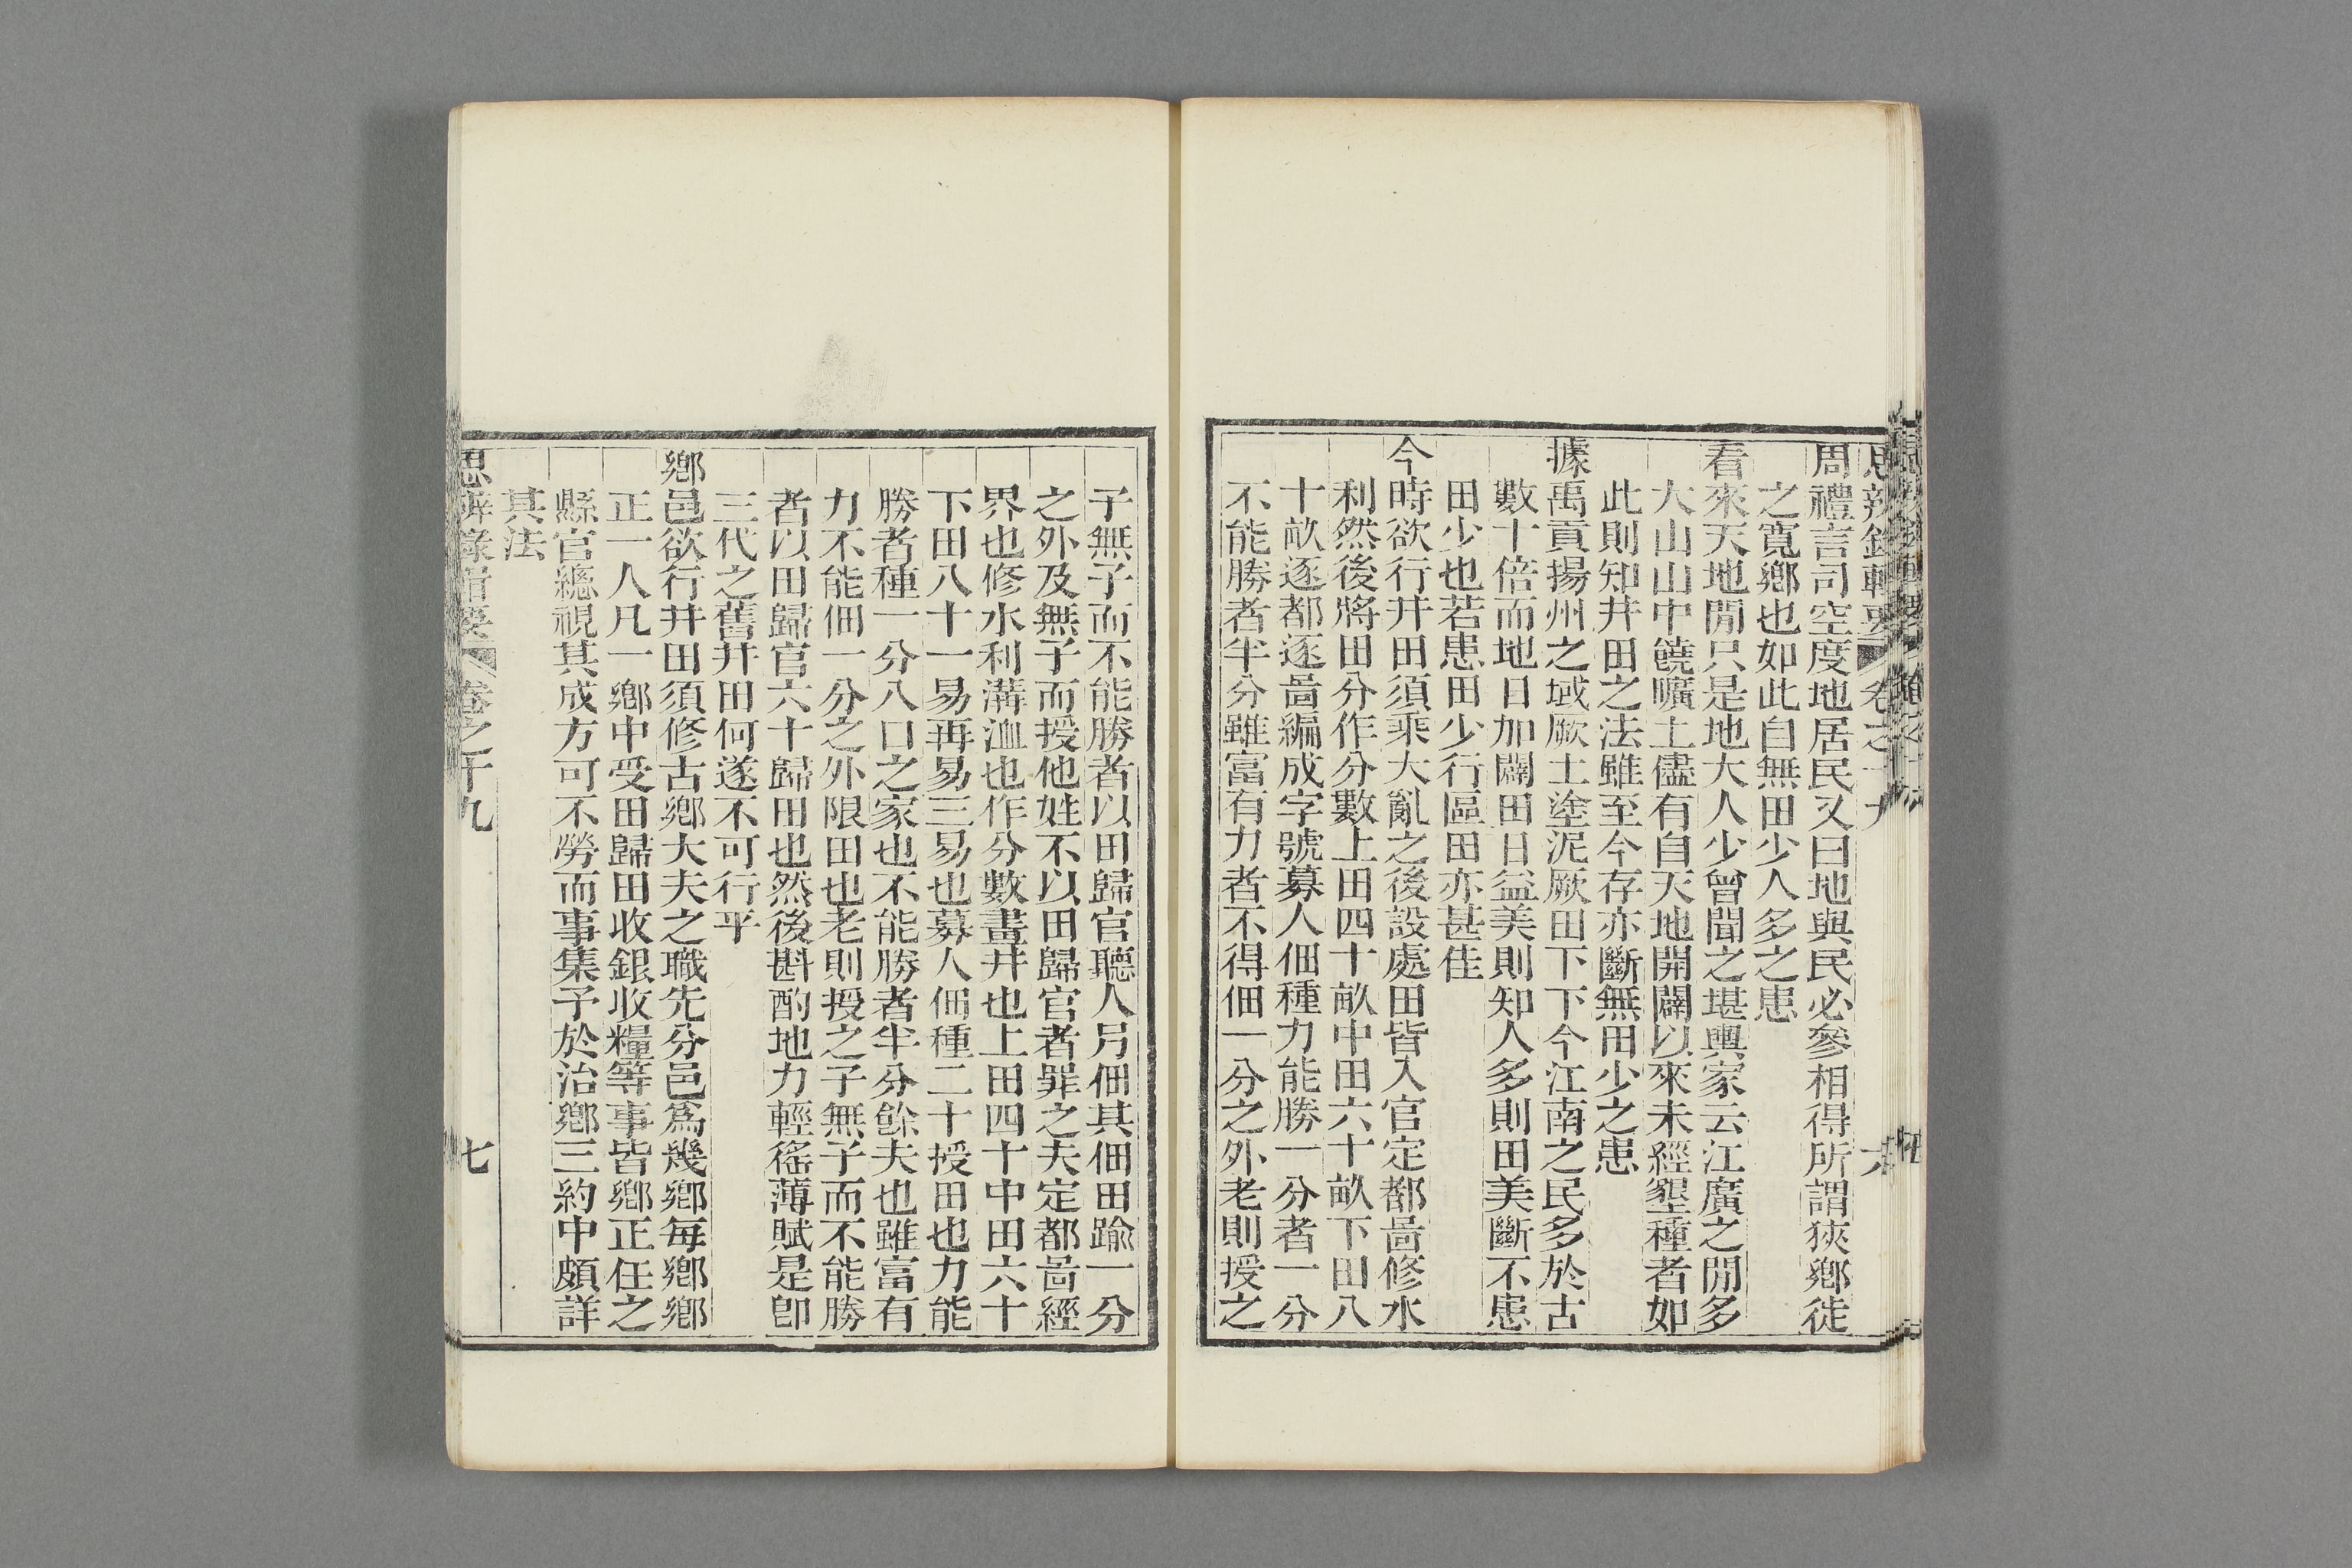 思辨錄輯要 卷之十九 六
周禮言司空度地居民又曰地與民必參相得所謂狹鄕徙
之寬鄕也如此自無田少人多之患
看來天地閒只是地大人少曾聞之堪輿家云江廣之閒多
大山山中饒曠土儘有自天地開闢以來未經墾種者如
此則知井田之法雖至今存亦斷無田少之患
據禹貢揚州之域厥土塗泥厥田下下今江南之民多於古
數十倍而地日加闢田日益美則知人多則田美斷不患
田少也若患田少行區田亦甚佳
今時欲行井田須乘大亂之後設處田皆入官定都啚修水
利然後將田分作分數上田四十畝中田六十畝下田八
十畝逐都逐啚編成字號募人佃種力能勝一分者一分
不能勝者半分雖富有力者不得佃一分之外老則授之
子無子而不能勝者以田歸官聽人另佃其佃田踰一分
之外及無子而授他姓不以田歸官者罪之夫定都啚經
界也修水利溝洫也作分數畫井也上田四十中田六十
下田八十一易再易三易也募人佃種二十授田也力能
勝者種一分八口之家也不能勝者半分餘夫也雖富有
力不能佃一分之外限田也老則授之子無子而不能勝
者以田歸官六十歸田也然後斟酌地力輕徭薄賦是卽
三代之舊井田何遂不可行乎
鄕邑欲行井田須修古鄕大夫之職先分邑爲幾鄕每鄕鄕
正一人凡一鄕中受田歸田收銀收糧等事皆鄕正任之
縣官緫視其成方可不勞而事集予於治鄕三約中頗詳
其法
思辨錄輯要 卷之十九 七